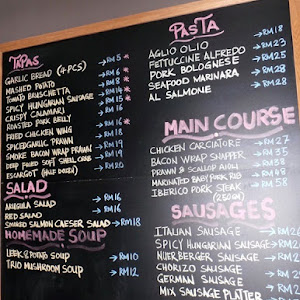 TAPAS
GARLIC BREAD (4 PCS) → RM 5
MASHED POTATO → RM 6
TOMATO BRUSCHETTA → RM 8
SPICY HUNGARIAN SAUSAGE → RM 14
CRISPY CALAMARI → RM 15
ROASTED PORK BELLY → RM 16
FRIED CHICKEN WING → RM 18
SPICED GARLIC PRAWN → RM 18
SMOKE BACON WRAP PRAWN → RM 19
DEEP FRIED SOFT SHELL CRAB → RM 20
ESCARGOT (HALF DOZEN) → RM 20
SALAD
ARUGULA SALAD → RM 16
RED SALAD → RM 16
SMOKED SALMON CAESER SALAD → RM 18
HOMEMADE SOUP
LEEK & POTATO SOUP → RM 10
TRIO MUSHROOM SOUP → RM 12
PASTA
AGLIO OLIO → RM 18
FETTUCCINE ALFREDO → RM 23
PORK BOLOGNESE → RM 25
SEAFOOD MARINARA → RM 28
AL SALMONE → RM 28
MAIN COURSE
CHICKEN CARCIATORE → RM 27
BACON WRAP SNAPPER → RM 35
PRAWN & SCALLOP → RM 38
MARINATED BABY PORK RIB → RM 48
IBERICO PORK STEAK → RM 58
SAUSAGES
ITALIAN SAUSAGE → RM 20
SPICY HUNGARIAN SAUSAGE
NUERBERGER SAUSAGE
CHORIZO SAUSAGE
GERMAN SAUSAGE
MIX SAUSAGE PLATTER